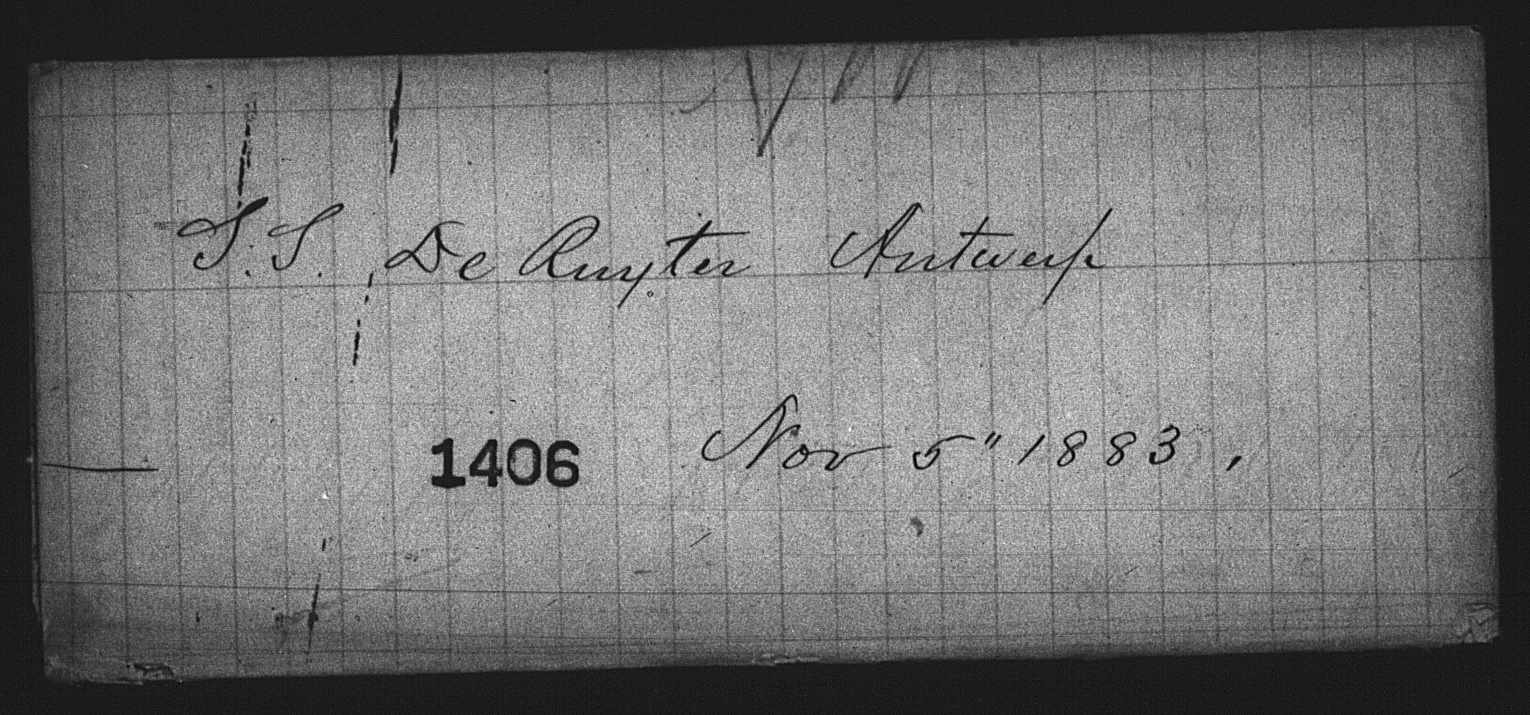 S.S. De Ruyter Antwerp
1406 Nov 5" 1883,